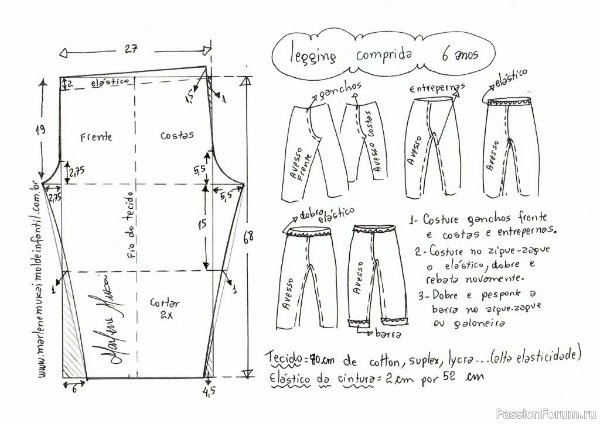 27
legging comprida 6 anos
2
elástico
1,5
1
19
Frente
Costas
2,75
5,5
2,75
5,5
15
Fio do tecido
68
1
1
Cortar
2x
Marlene Mukai
6
4,5
www.marlenemukaimoldeinfantil.com.br
ganchos
Avesso
Frente
Avesso
Costas
Entrepernas
Avesso
elástico
dobra
elástico
Avesso
Avesso
barra
1- Costure ganchos frente
e costas e entrepernas.
2- Costure no zigue-zague
o elástico, dobre e
rebata novamente.
3- Dobre e pesponte a
barra no zigue-zague
ou galoneira
Tecido = 70 cm de cotton, suplex, lycra... (alta elasticidade)
Elástico da cintura = 2 cm por 52 cm
PassionForum.ru